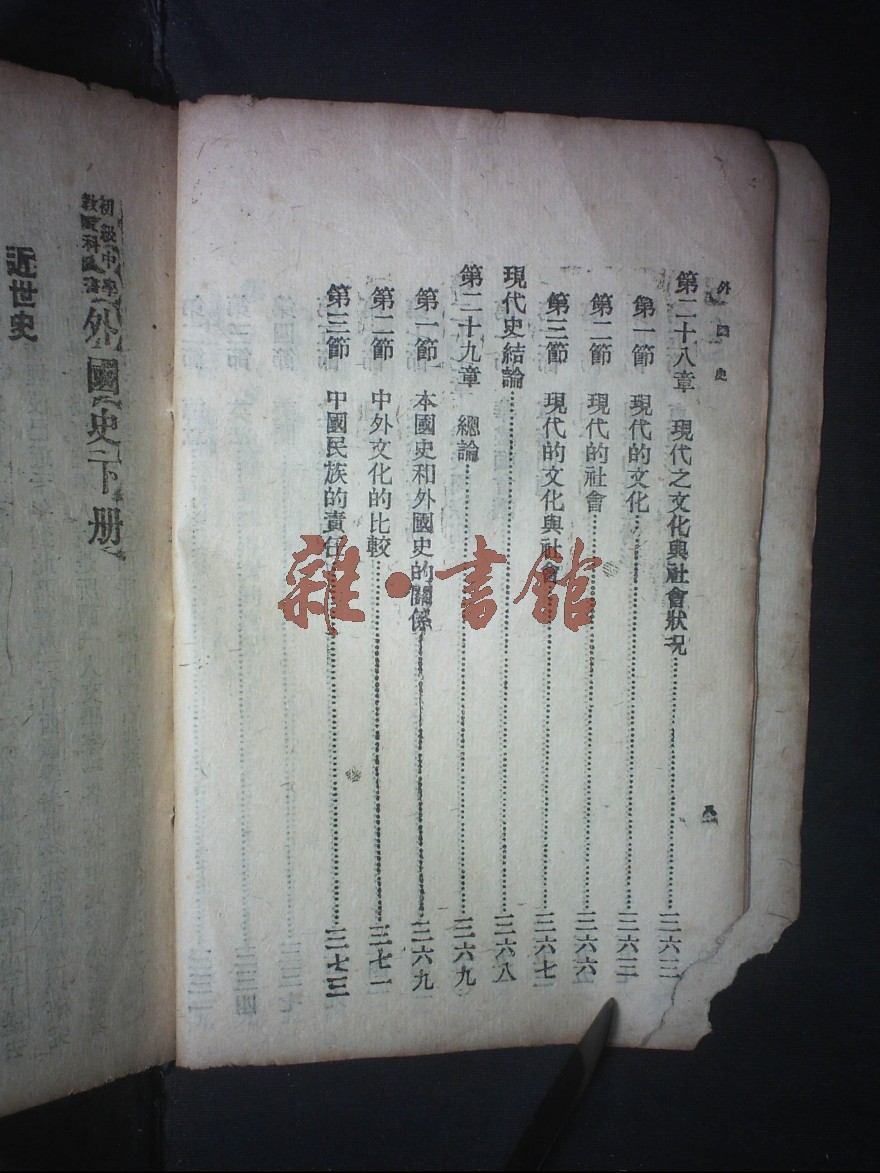 外國史
第二十八章　現代之文化與社會狀況……三六三
第一節　現代的文化……三六三
第二節　現代的社會……三六六
第三節　現代的文化與社會……三六七
現代史結論……三六八
第二十九章　總論……三六九
第一節　本國史和外國史的關係……三六九
第二節　中外文化的比較……三七一
第三節　中國民族的責任……三七三
初級中學
教科書
外國史下册
近世史
雜·書館